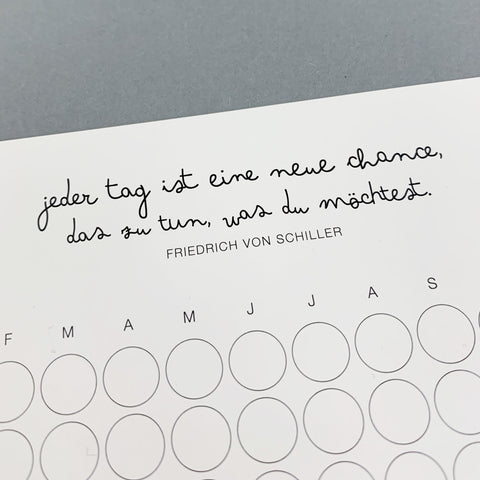 jeder tag ist eine neue chance,
das zu tun, was du möchtest.
FRIEDRICH VON SCHILLER
F M A M J J A S